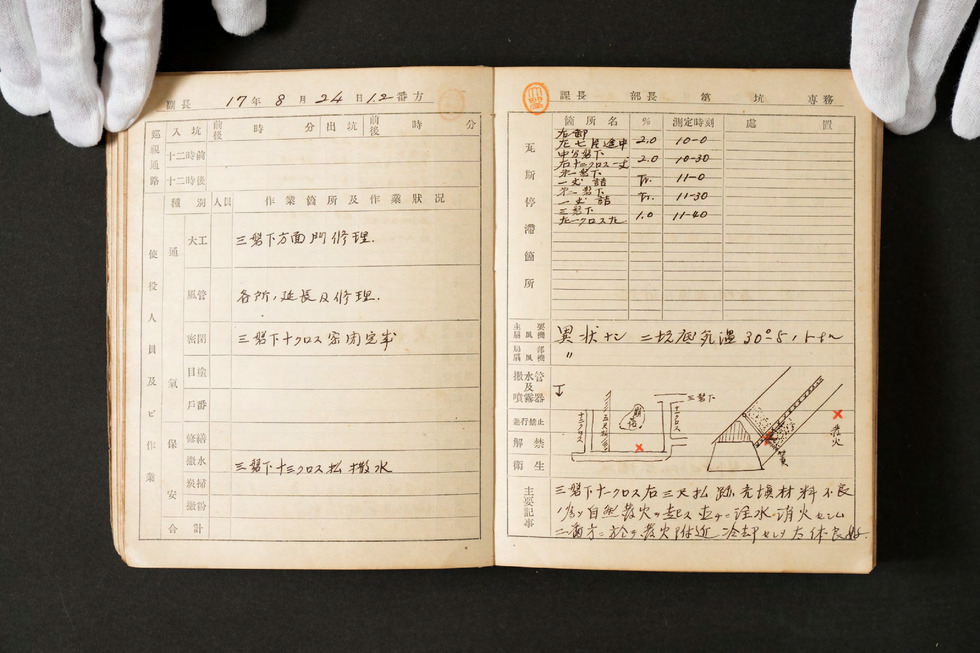 副長 17年 8月 24日 1.2番方
巡視通路
入坑 前後 時 分 出坑 前後 時 分
十二時前
十二時後
使役人員及ビ作業
種別 人員 作業箇所及作業狀況
通氣
大工 三盤下方面門修理.
風管 各所ノ延長及修理.
密閉 三盤下十クロス密閉完成
目塗
戶番
保安
修繕
撒水 三盤下十三クロス払撒水
炭掃
撒粉
合計
課長 部長 第 坑 專務
瓦斯停滯箇所
箇所名 % 測定時刻 處置
左卸
左七片途中 2.0 10-0
中分盤下
右十二クロス一丈 2.0 10-30
第一盤下
一丈詰 Tr. 11-0
第一盤下
一丈詰 Tr. 11-30
三盤下
左一クロス 1.0 11-40
主要扇風機 異狀ナシ 三坑底気温 30°5
局部扇風機 〃
撒水管及噴霧器
進行禁止
解禁
衛生
三盤下
十二クロス
十一クロス
崩落
発火
主要記事
三盤下十一クロス右三尺払跡充塡材料不良
ノ為メ自然発火ヲ起ス 注水消火セシム
二番方ニ於テ発火附近ノ冷却セシメ大体良好